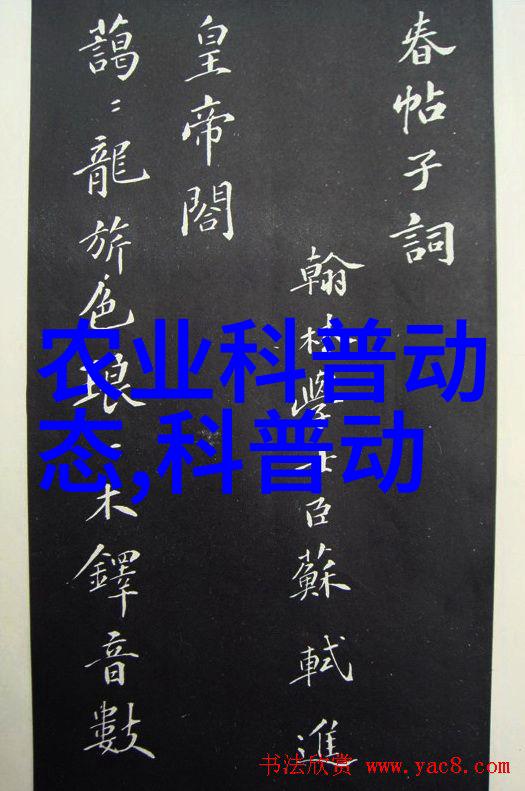 春帖子詞
翰林學士臣蘇軾進
皇帝閣
藹〻龍旂色琅〻木鐸音數
农业科普动
态,科普动
书法欣赏 www.yac8.com